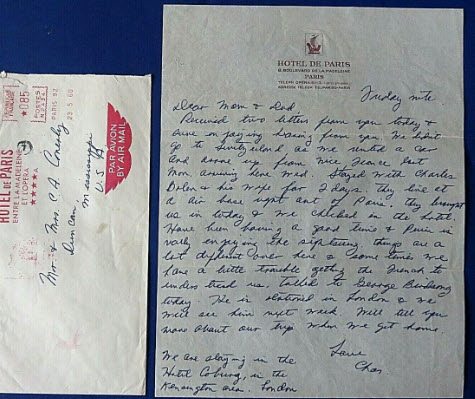 HOTEL DE PARIS
8, BOULEVARD DE LA MADELEINE
PARIS
Friday nite
Dear Mom & Dad,
Received two letters from you today &
sure enjoying hearing from you. We didn't
go to Switzerland as we rented a car
and drove up from Nice France last
Mon. arriving here Wed. Stayed with Charles
& his wife for 2 days. They live at
a air base right out of Paris. They brought
us in today & we checked in the hotel.
Have been having a good time & Paris is
really enjoying the sightseeing things are a
lot different over here & some times we
have a little trouble getting the French to
understand us. Talked to George
today. He is stationed in London & we
will see him next week. Will tell you
more about our trip when we get home.
Love
Chas
We are staying in the
Hotel Coburg, in the
Kensington area. London
HOTEL DE PARIS
ENTRE LA MADELEINE
ET L'OPERA
★★★★A
085
POSTES
PARIS 92
23 5 60
PAR AVION
BY AIR MAIL
Mr & Mrs. C. A. Conerly
Duncan,
Mississippi
U.S.A.